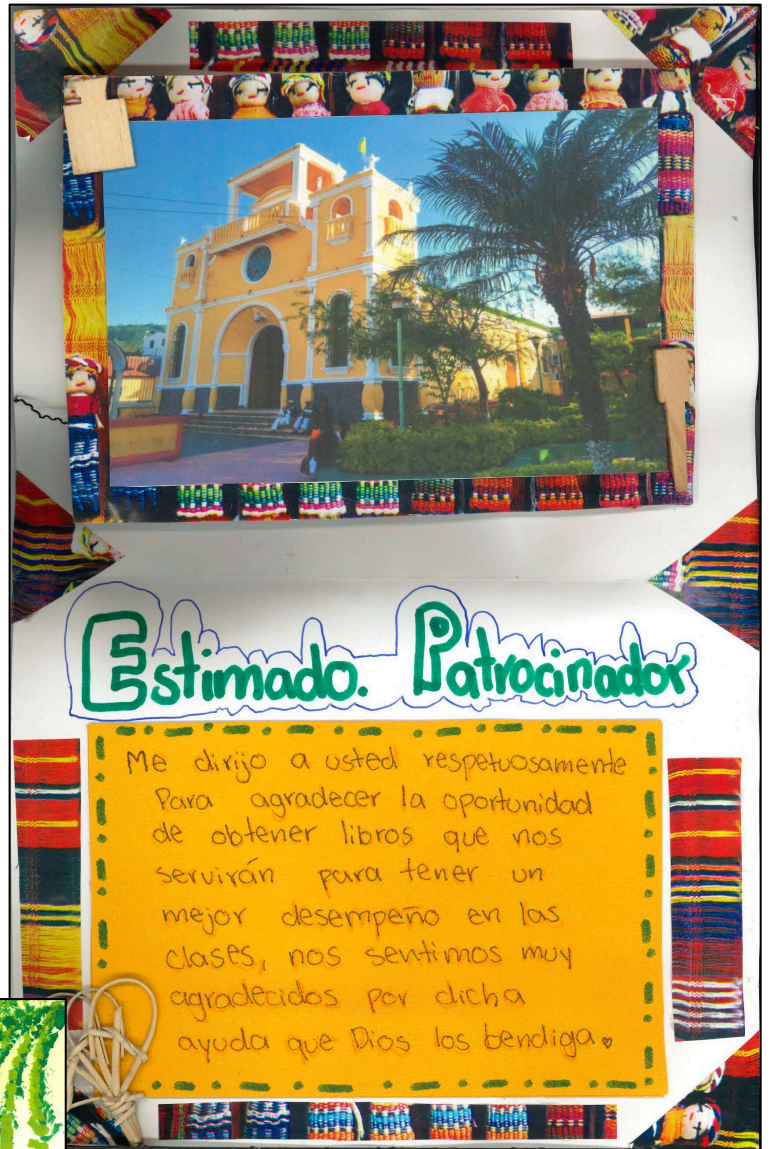 Estimado. Patrocinador
Me dirijo a usted respetuosamente
Para agradecer la oportunidad
de obtener libros que nos
servirán para tener un
mejor desempeño en las
clases, nos sentimos muy
agradecidos por dicha
ayuda que Dios los bendiga.